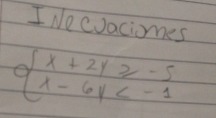 INecuaciones
x + 2y ≥ -5
x - 6y < -1